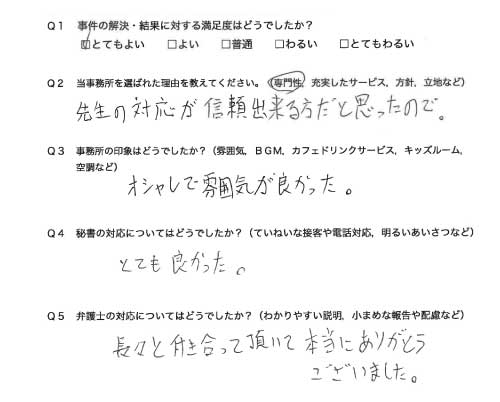 Q1 事件の解決・結果に対する満足度はどうでしたか？
☑とてもよい □よい □普通 □わるい □とてもわるい
Q2 当事務所を選ばれた理由を教えてください。（専門性，充実したサービス，方針，立地など）
先生の対応が信頼出来る方だと思ったので。
Q3 事務所の印象はどうでしたか？（雰囲気，BGM，カフェドリンクサービス，キッズルーム，
空調など）
オシャレで雰囲気が良かった。
Q4 秘書の対応についてはどうでしたか？（ていねいな接客や電話対応，明るいあいさつなど）
とても良かった。
Q5 弁護士の対応についてはどうでしたか？（わかりやすい説明，小まめな報告や配慮など）
長々と付き合って頂いて本当にありがとう
ございました。